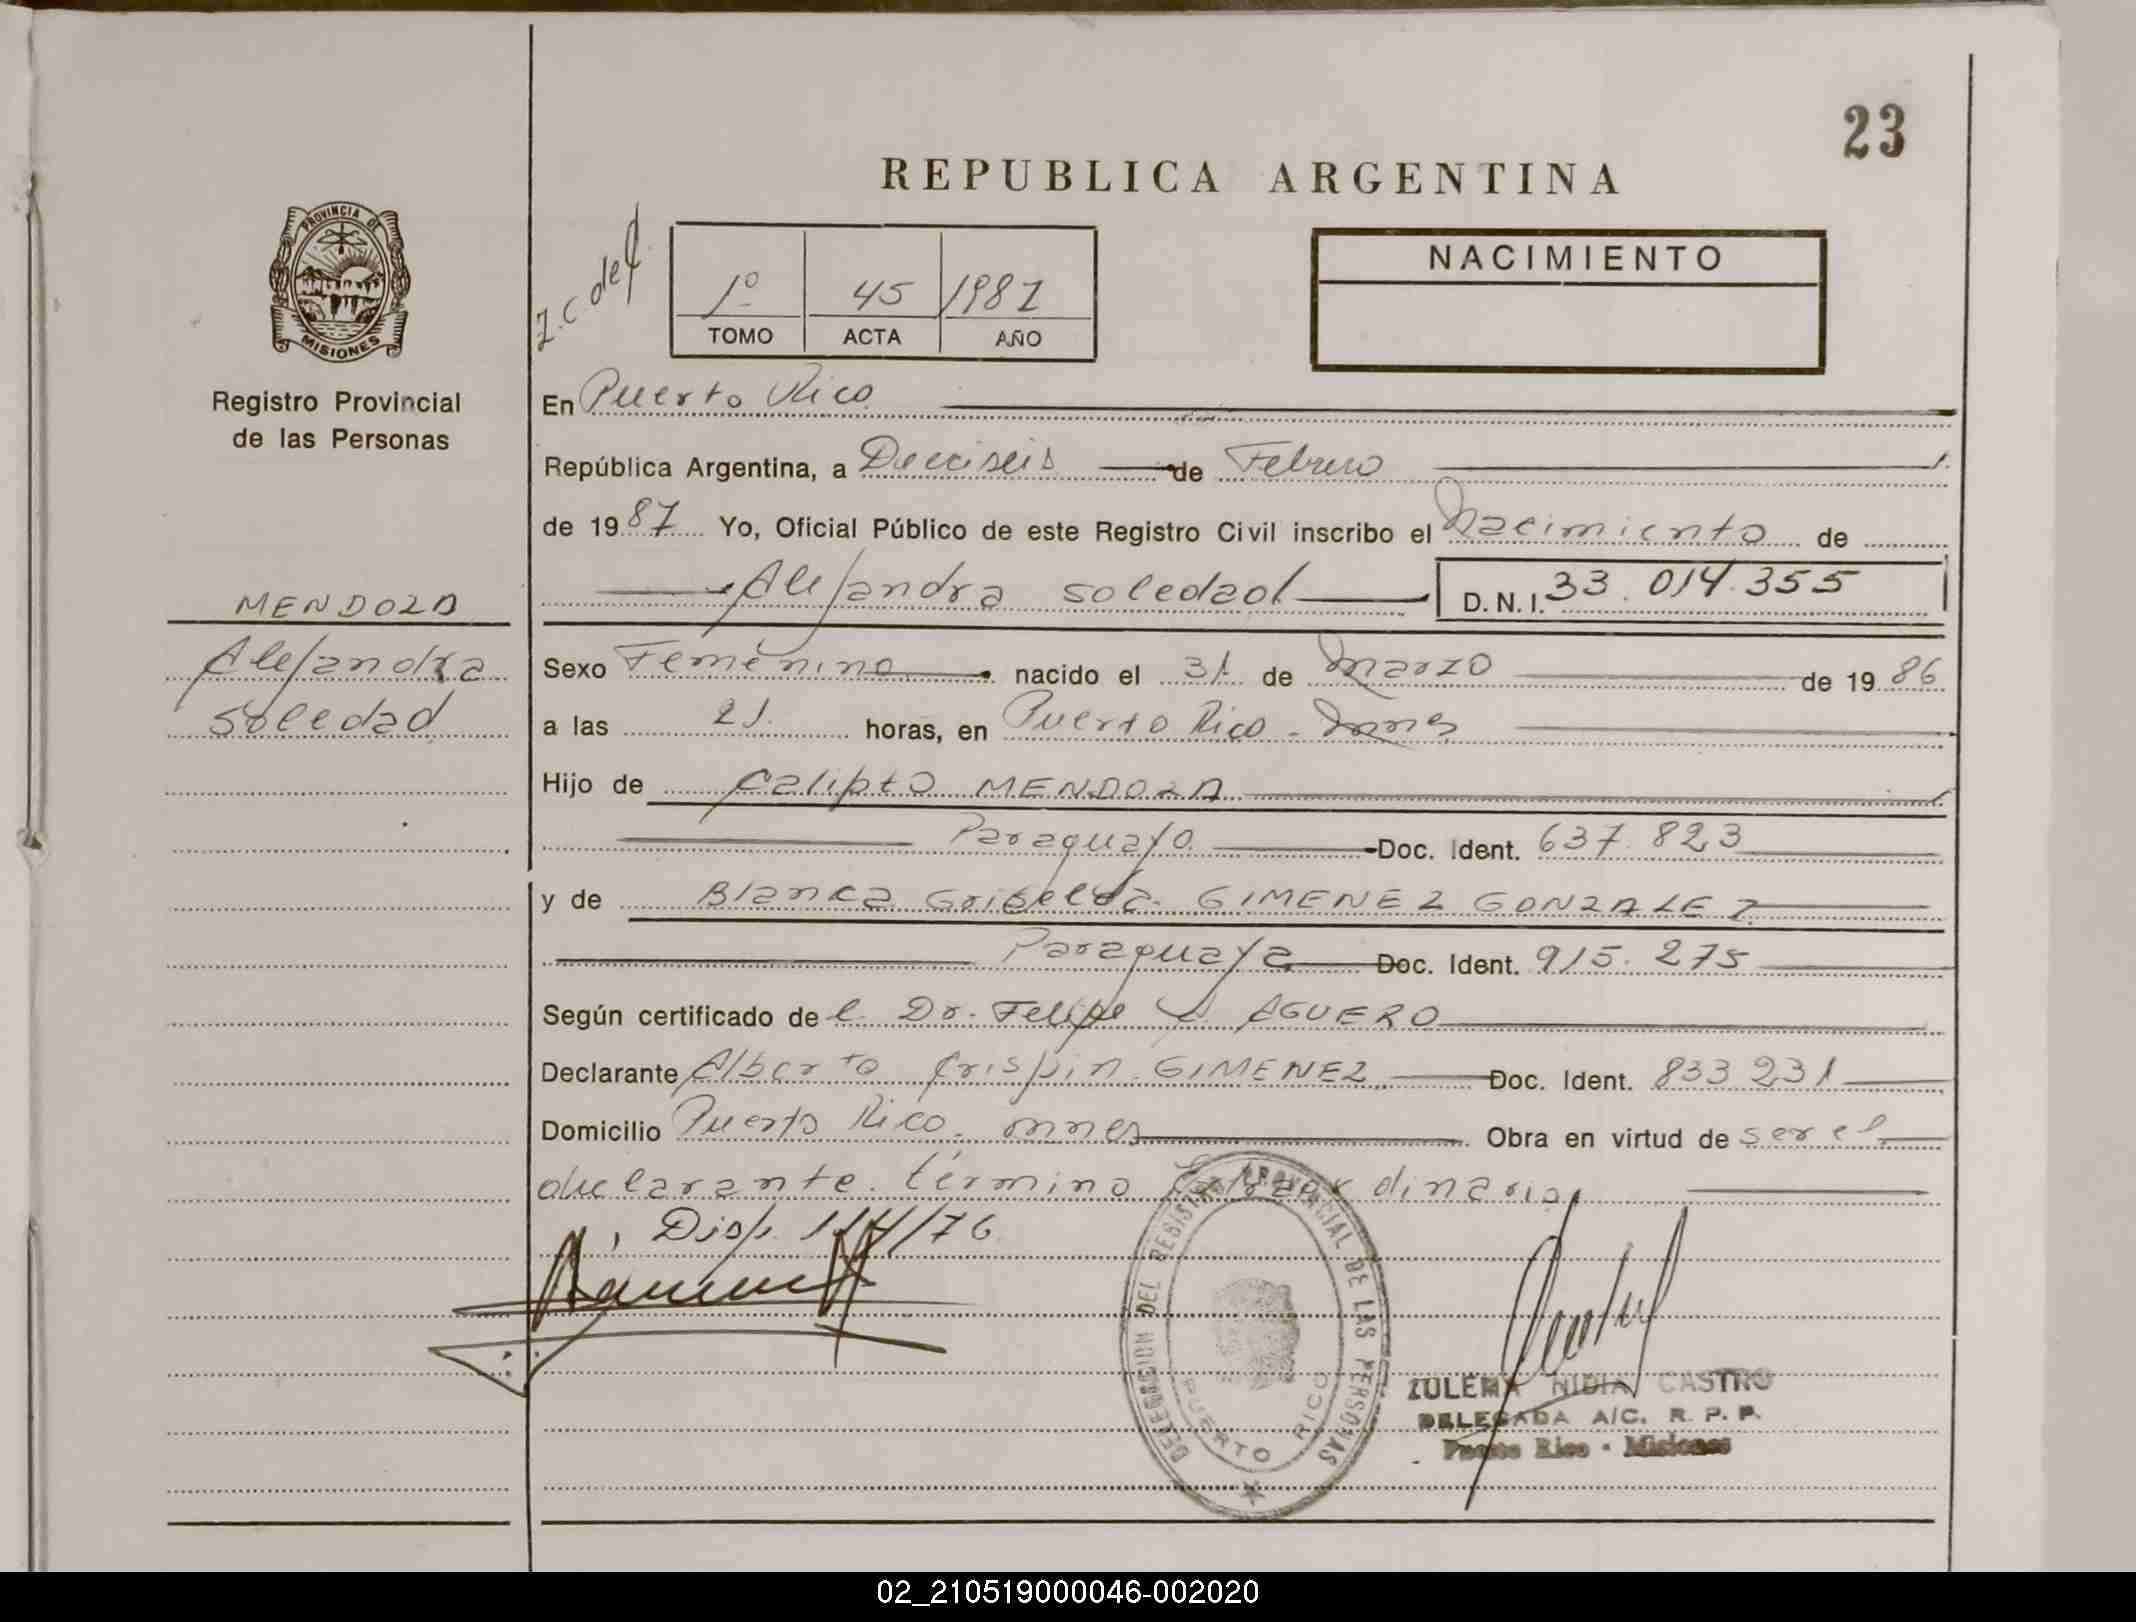 23
REPUBLICA ARGENTINA
PROVINCIA DE
MISIONES
Registro Provincial
de las Personas
1º 45 1987
TOMO ACTA AÑO
NACIMIENTO
En Puerto Rico
República Argentina, a Dieciseis de Febrero
de 1987 Yo, Oficial Público de este Registro Civil inscribo el Nacimiento de
Alejandra Soledad D.N.I. 33.014.355
MENDOZA
Alejandra
Soledad
Sexo Femenino nacido el 31 de Marzo de 1986
a las 21 horas, en Puerto Rico - Mnes
Hijo de Calipto MENDOZA
Paraguayo Doc. Ident. 637.823
y de Blanca Griselda GIMENEZ GONZALEZ
Paraguaya Doc. Ident. 915.275
Según certificado del Dr. Felipe AGUERO
Declarante Alberto Crispin GIMENEZ Doc. Ident. 833231
Domicilio Puerto Rico - mnes Obra en virtud de ser el
declarante. término Extraordinario
Disp. 114/76
DELEGACION DEL REGISTRO PROVINCIAL DE LAS PERSONAS
PUERTO RICO
ZULEMA NIDIA CASTRO
DELEGADA A/C. R. P. P.
Puerto Rico - Misiones
02_210519000046-002020